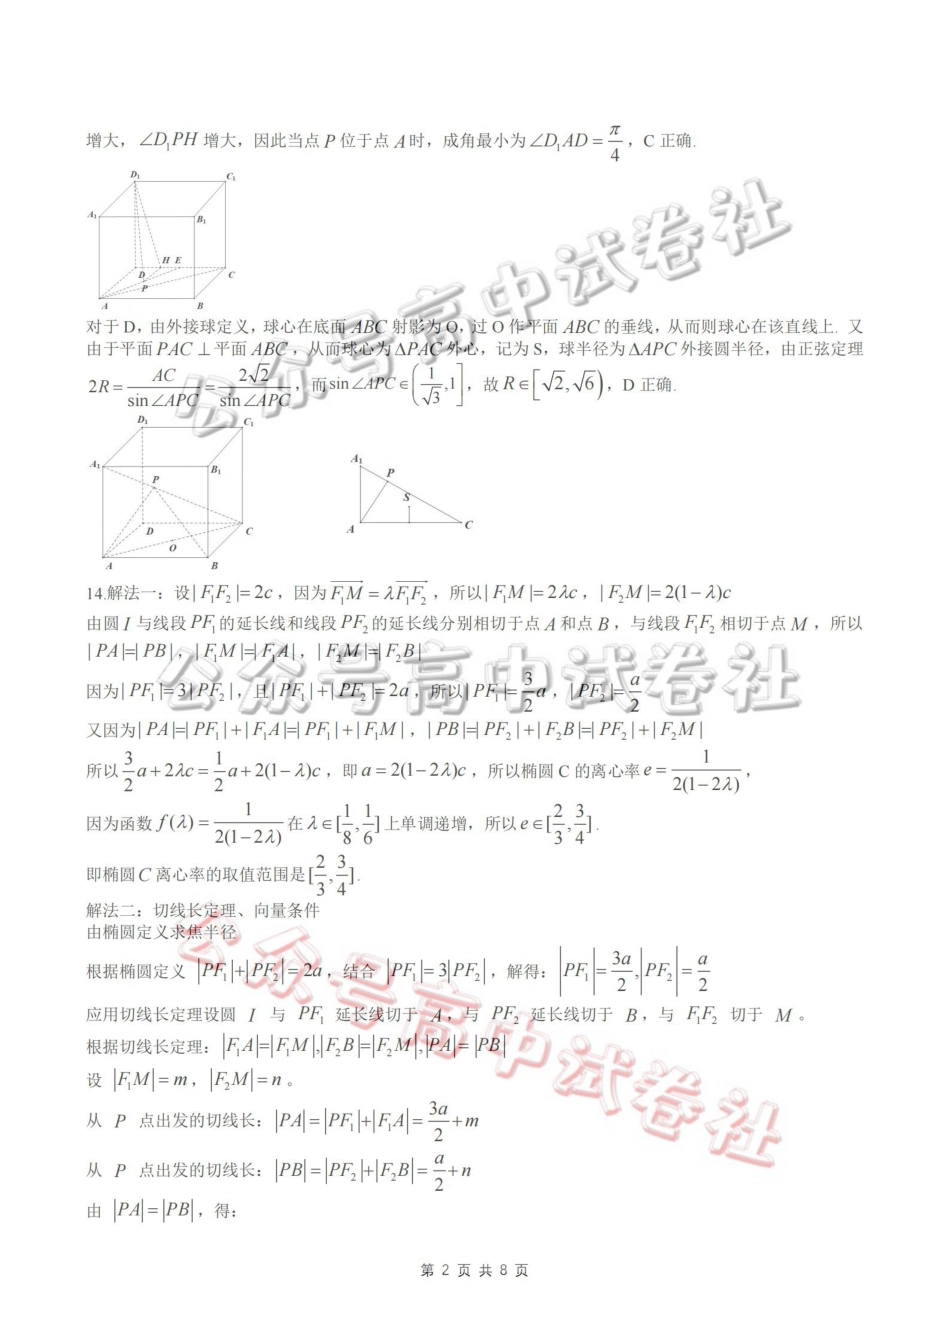 增大，∠D₁PH 增大，因此当点 P 位于点 A 时，成角最小为∠D₁AD = π/4，C 正确.
D₁ C₁
A₁ B₁
H E
D C
P
A B
对于 D，由外接球定义，球心在底面 ABC 射影为 O，过 O 作平面 ABC 的垂线，从而则球心在该直线上. 又
由于平面 PAC ⊥平面 ABC，从而球心为 ΔPAC 外心，记为 S，球半径为 ΔAPC 外接圆半径，由正弦定理
2R = AC/sin∠APC = 2√2/sin∠APC，而 sin∠APC ∈ (1/√3, 1]，故 R ∈ [√2, √6)，D 正确.
D₁ C₁
A₁ B₁
P
D C
O
A B
A₁
P
S
A C
14.解法一：设| F₁F₂ |= 2c，因为 F₁M = λF₁F₂，所以| F₁M |= 2λc，| F₂M |= 2(1−λ)c
由圆 I 与线段 PF₁的延长线和线段 PF₂的延长线分别相切于点 A 和点 B，与线段 F₁F₂ 相切于点 M，所以
| PA |=| PB |，| F₁M |=| F₁A |，| F₂M |=| F₂B |
因为| PF₁ |= 3| PF₂ |，且| PF₁ |+| PF₂ |= 2a，所以| PF₁ |= 3/2 a，| PF₂ |= a/2
又因为| PA |=| PF₁ |+| F₁A |=| PF₁ |+| F₁M |，| PB |=| PF₂ |+| F₂B |=| PF₂ |+| F₂M |
所以 3/2 a + 2λc = 1/2 a + 2(1−λ)c，即 a = 2(1−2λ)c，所以椭圆 C 的离心率 e = 1/(2(1−2λ))，
因为函数 f(λ) = 1/(2(1−2λ)) 在 λ∈[1/8, 1/6]上单调递增，所以 e∈[2/3, 3/4].
即椭圆 C 离心率的取值范围是[2/3, 3/4].
解法二：切线长定理、向量条件
由椭圆定义求焦半径
根据椭圆定义 |PF₁|+|PF₂| = 2a，结合 |PF₁| = 3|PF₂|，解得：|PF₁| = 3a/2, |PF₂| = a/2
应用切线长定理设圆 I 与 PF₁ 延长线切于 A，与 PF₂ 延长线切于 B，与 F₁F₂ 切于 M。
根据切线长定理：|F₁A|=|F₁M|,|F₂B|=|F₂M|,|PA|=|PB|
设 |F₁M| = m，|F₂M| = n。
从 P 点出发的切线长：|PA| = |PF₁|+|F₁A| = 3a/2 + m
从 P 点出发的切线长：|PB| = |PF₂|+|F₂B| = a/2 + n
由 |PA| = |PB|，得：
第 2 页 共 8 页
公众号高中试卷社
公众号高中试卷社
公众号高中试卷社